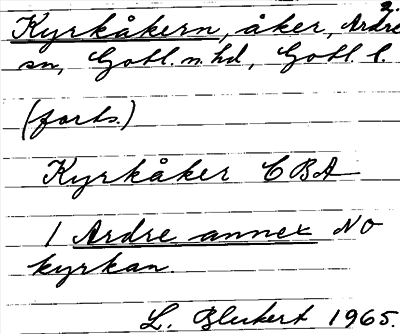 2.
Kyrkåkern, åker, Ardre
sn, Gotl. n. hd, Gotl. l.
(forts.)
Kyrkåker CBA
1 Ardre annex NO
kyrkan.
L. Blukert 1965.